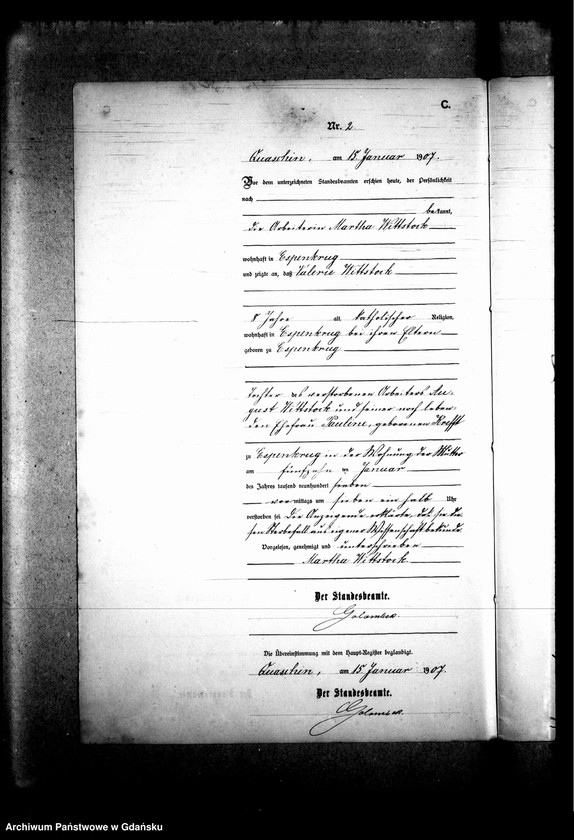 C.
Nr. 2
Quaschin, am 15. Januar 1907.
Vor dem unterzeichneten Standesbeamten erschien heute, der Persönlichkeit
nach
bekannt,
die Arbeiterin Martha Wittstock
wohnhaft in Espenkrug
und zeigte an, daß Valerie Wittstock
8 Jahre alt, katholischer Religion,
wohnhaft in Espenkrug bei ihren Eltern
geboren zu Espenkrug
Tochter des verstorbenen Arbeiters Au-
gust Wittstock und seiner noch leben-
den Ehefrau Pauline, geborenen Krefft
zu Espenkrug in der Wohnung der Mutter
am fünfzehn ten Januar
des Jahres tausend neunhundert sieben
vor mittags um sieben ein halb Uhr
verstorben sei. Die Anzeigende erklärte, daß sie die-
sen Sterbefall aus eigener Wissenschaft bekunde.
Vorgelesen, genehmigt und unterschrieben
Martha Wittstock.
Der Standesbeamte.
Golombek.
Die Übereinstimmung mit dem Haupt-Register beglaubigt.
Quaschin, am 15. Januar 1907.
Der Standesbeamte.
Golombek.
Archiwum Państwowe w Gdańsku